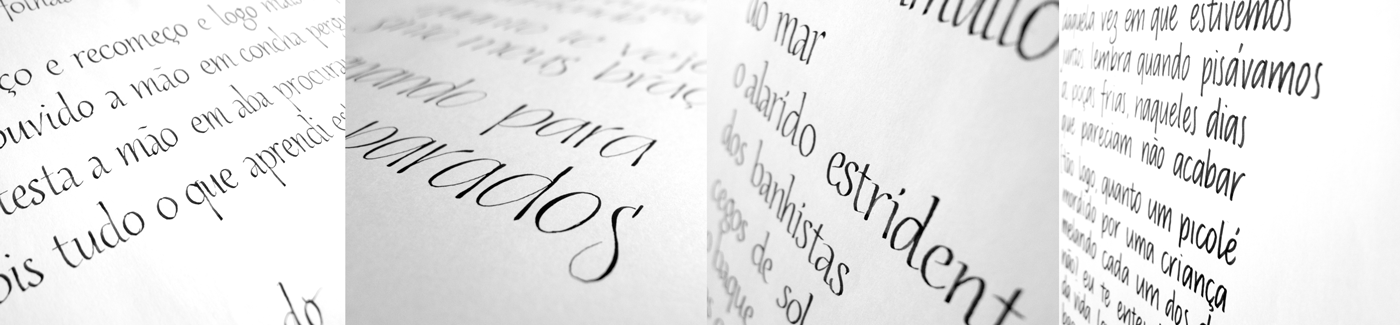 ço e recomeço e logo
ouvido a mão em concha
testa a mão em aba
ois tudo o que aprendi
do
quando te vejo
sinto meus braç
uando para
parados
do mar
o alarido estrident
dos banhistas
cegos de sol
baque
naquela vez em que estivemos
juntos lembra quando pisávamos
poças frias, naqueles dias
que pareciam não acabar
tão logo, quanto um picolé
mordido por uma criança
melando cada um dos d
não) eu te enten
da vida